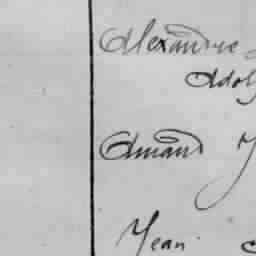 Alexandre
Adol
Amand
Jean